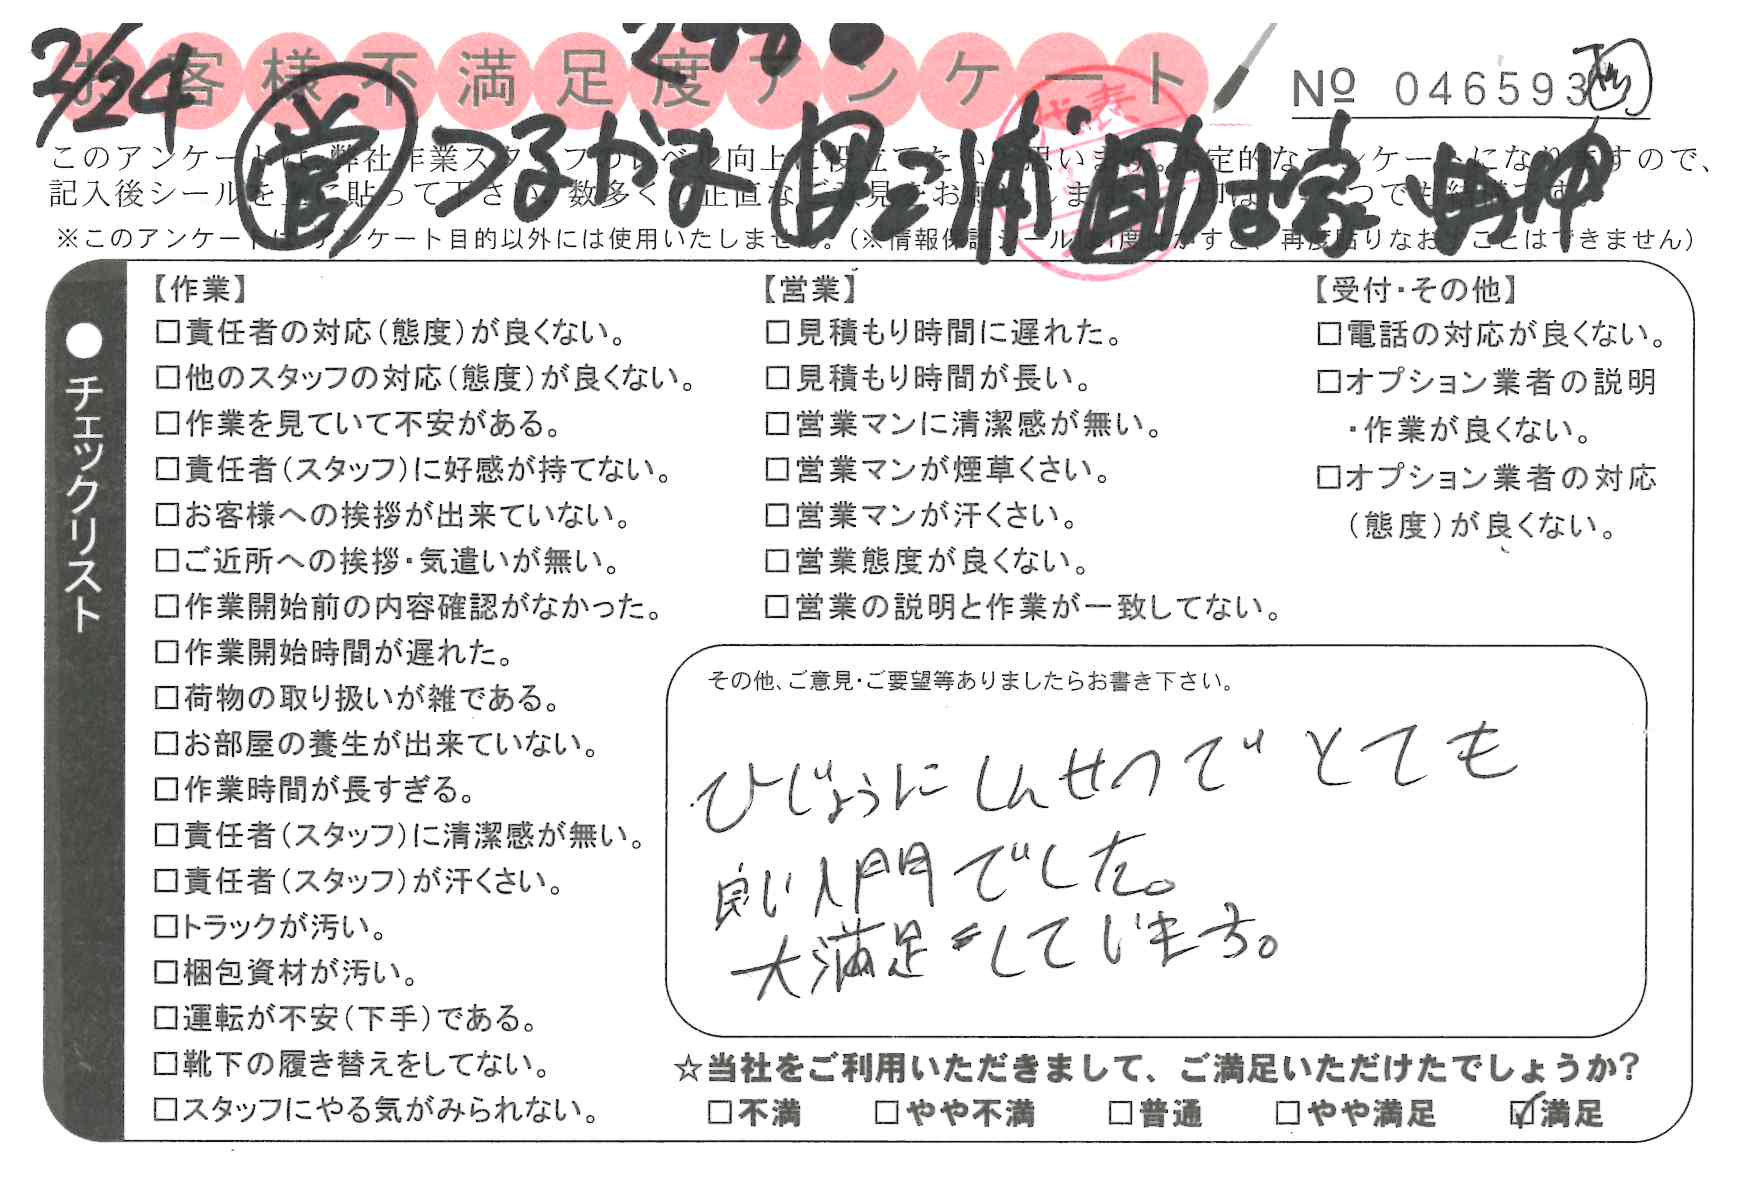 2/24
お客様不満足度アンケート
№ 046593
営 つるがま
三浦
このアンケートは、弊社作業スタッフのレベル向上に役立てたいと思います。否定的なアンケートになりますので、
記入後シールを上に貼って下さい。数多くの正直なご意見をお願いします。
※このアンケートは、アンケート目的以外には使用いたしません。(※情報保護シールは1度はがすと、再度貼りなおすことはできません)
●チェックリスト
【作業】
□責任者の対応(態度)が良くない。
□他のスタッフの対応(態度)が良くない。
□作業を見ていて不安がある。
□責任者(スタッフ)に好感が持てない。
□お客様への挨拶が出来ていない。
□ご近所への挨拶・気遣いが無い。
□作業開始前の内容確認がなかった。
□作業開始時間が遅れた。
□荷物の取り扱いが雑である。
□お部屋の養生が出来ていない。
□作業時間が長すぎる。
□責任者(スタッフ)に清潔感が無い。
□責任者(スタッフ)が汗くさい。
□トラックが汚い。
□梱包資材が汚い。
□運転が不安(下手)である。
□靴下の履き替えをしてない。
□スタッフにやる気がみられない。
【営業】
□見積もり時間に遅れた。
□見積もり時間が長い。
□営業マンに清潔感が無い。
□営業マンが煙草くさい。
□営業マンが汗くさい。
□営業態度が良くない。
□営業の説明と作業が一致してない。
【受付・その他】
□電話の対応が良くない。
□オプション業者の説明
・作業が良くない。
□オプション業者の対応
(態度)が良くない。
その他、ご意見・ご要望等ありましたらお書き下さい。
ひじょうにしんせつでとても
良い人門でした。
大満足しています。
☆当社をご利用いただきまして、ご満足いただけたでしょうか?
□不満 □やや不満 □普通 □やや満足 ☑満足